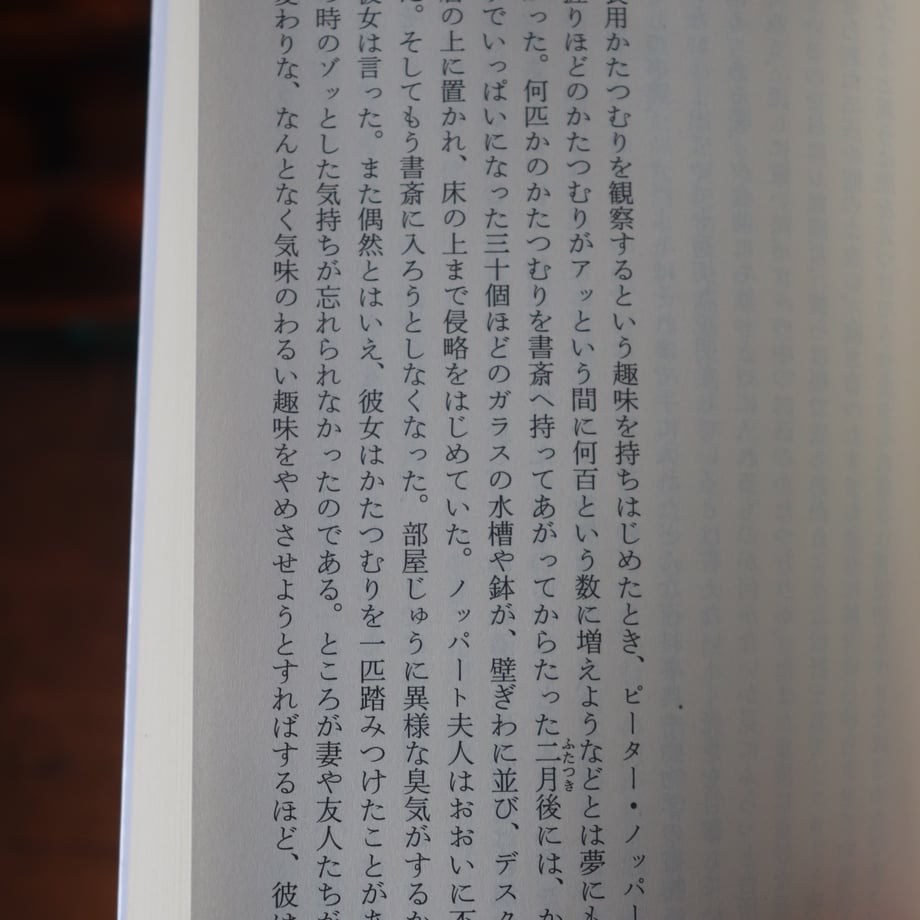 食用かたつむりを観察するという趣味を持ちはじめたとき、ピーター・ノッパー
握りほどのかたつむりがアッという間に何百という数に増えようなどとは夢にも
った。何匹かのかたつむりを書斎へ持ってあがってからたった二月後には、か
ふたつき
でいっぱいになった三十個ほどのガラスの水槽や鉢が、壁ぎわに並び、デスク
の上に置かれ、床の上まで侵略をはじめていた。ノッパート夫人はおおいに不
。そしてもう書斎に入ろうとしなくなった。部屋じゅうに異様な臭気がするか
彼女は言った。また偶然とはいえ、彼女はかたつむりを一匹踏みつけたことがあ
時のゾッとした気持ちが忘れられなかったのである。ところが妻や友人たちが
変わりな、なんとなく気味のわるい趣味をやめさせようとすればするほど、彼は